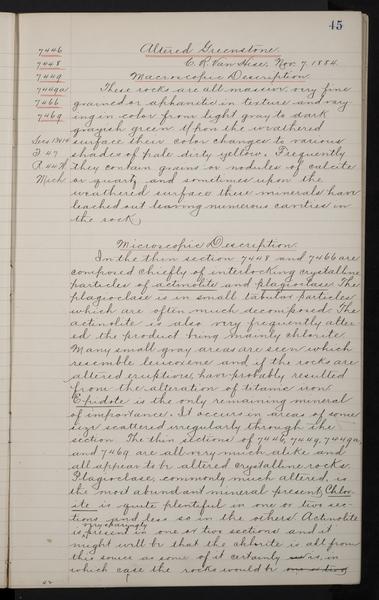 45
7446 Altered Greenstone.
7448 C. R. Van Hise, Nov. 7, 1884.
7449 Macroscopic Description
7449a These rocks are all massive, very fine
7466 grained or aphanitic in texture and vary
7469 ing in color from light gray to dark
grayish green. Upon the weathered
surface their color changes to various
T 47 shades of pale dirty yellow. Frequently
they contain grains or nodules of calcite
Mich or quartz and sometimes upon the
weathered surface these minerals have
leached out leaving numerous cavities in
the rock.
Microscopic Description.
In the thin section 7448 and 7466 are
composed chiefly of interlocking crystalline
particles of actinolite and plagioclase. The
plagioclase is in small tabular particles
which are often much decomposed. The
actinolite is also very frequently alter
ed the product being mainly chlorite.
Many small gray areas are seen which
resemble leucoxene and if the rocks are
altered eruptives, have probably resulted
from the alteration of titanic iron.
Epidote is the only remaining mineral
of importance. It occurs in areas of some
size scattered irregularly through the
section. The thin sections of 7446, 7449, 7449a,
and 7469 are all very much alike and
all appear to be altered crystalline rocks.
Plagioclase, commonly much altered, is
the most abundant mineral present. Chlor-
ite is quite plentiful in one or two sec-
tions and less so in the others. Actinolite
is very sparingly present in one or two sections and it
might well be that the chlorite is all from
this source as some of it certainly is, in
which case the rocks would be